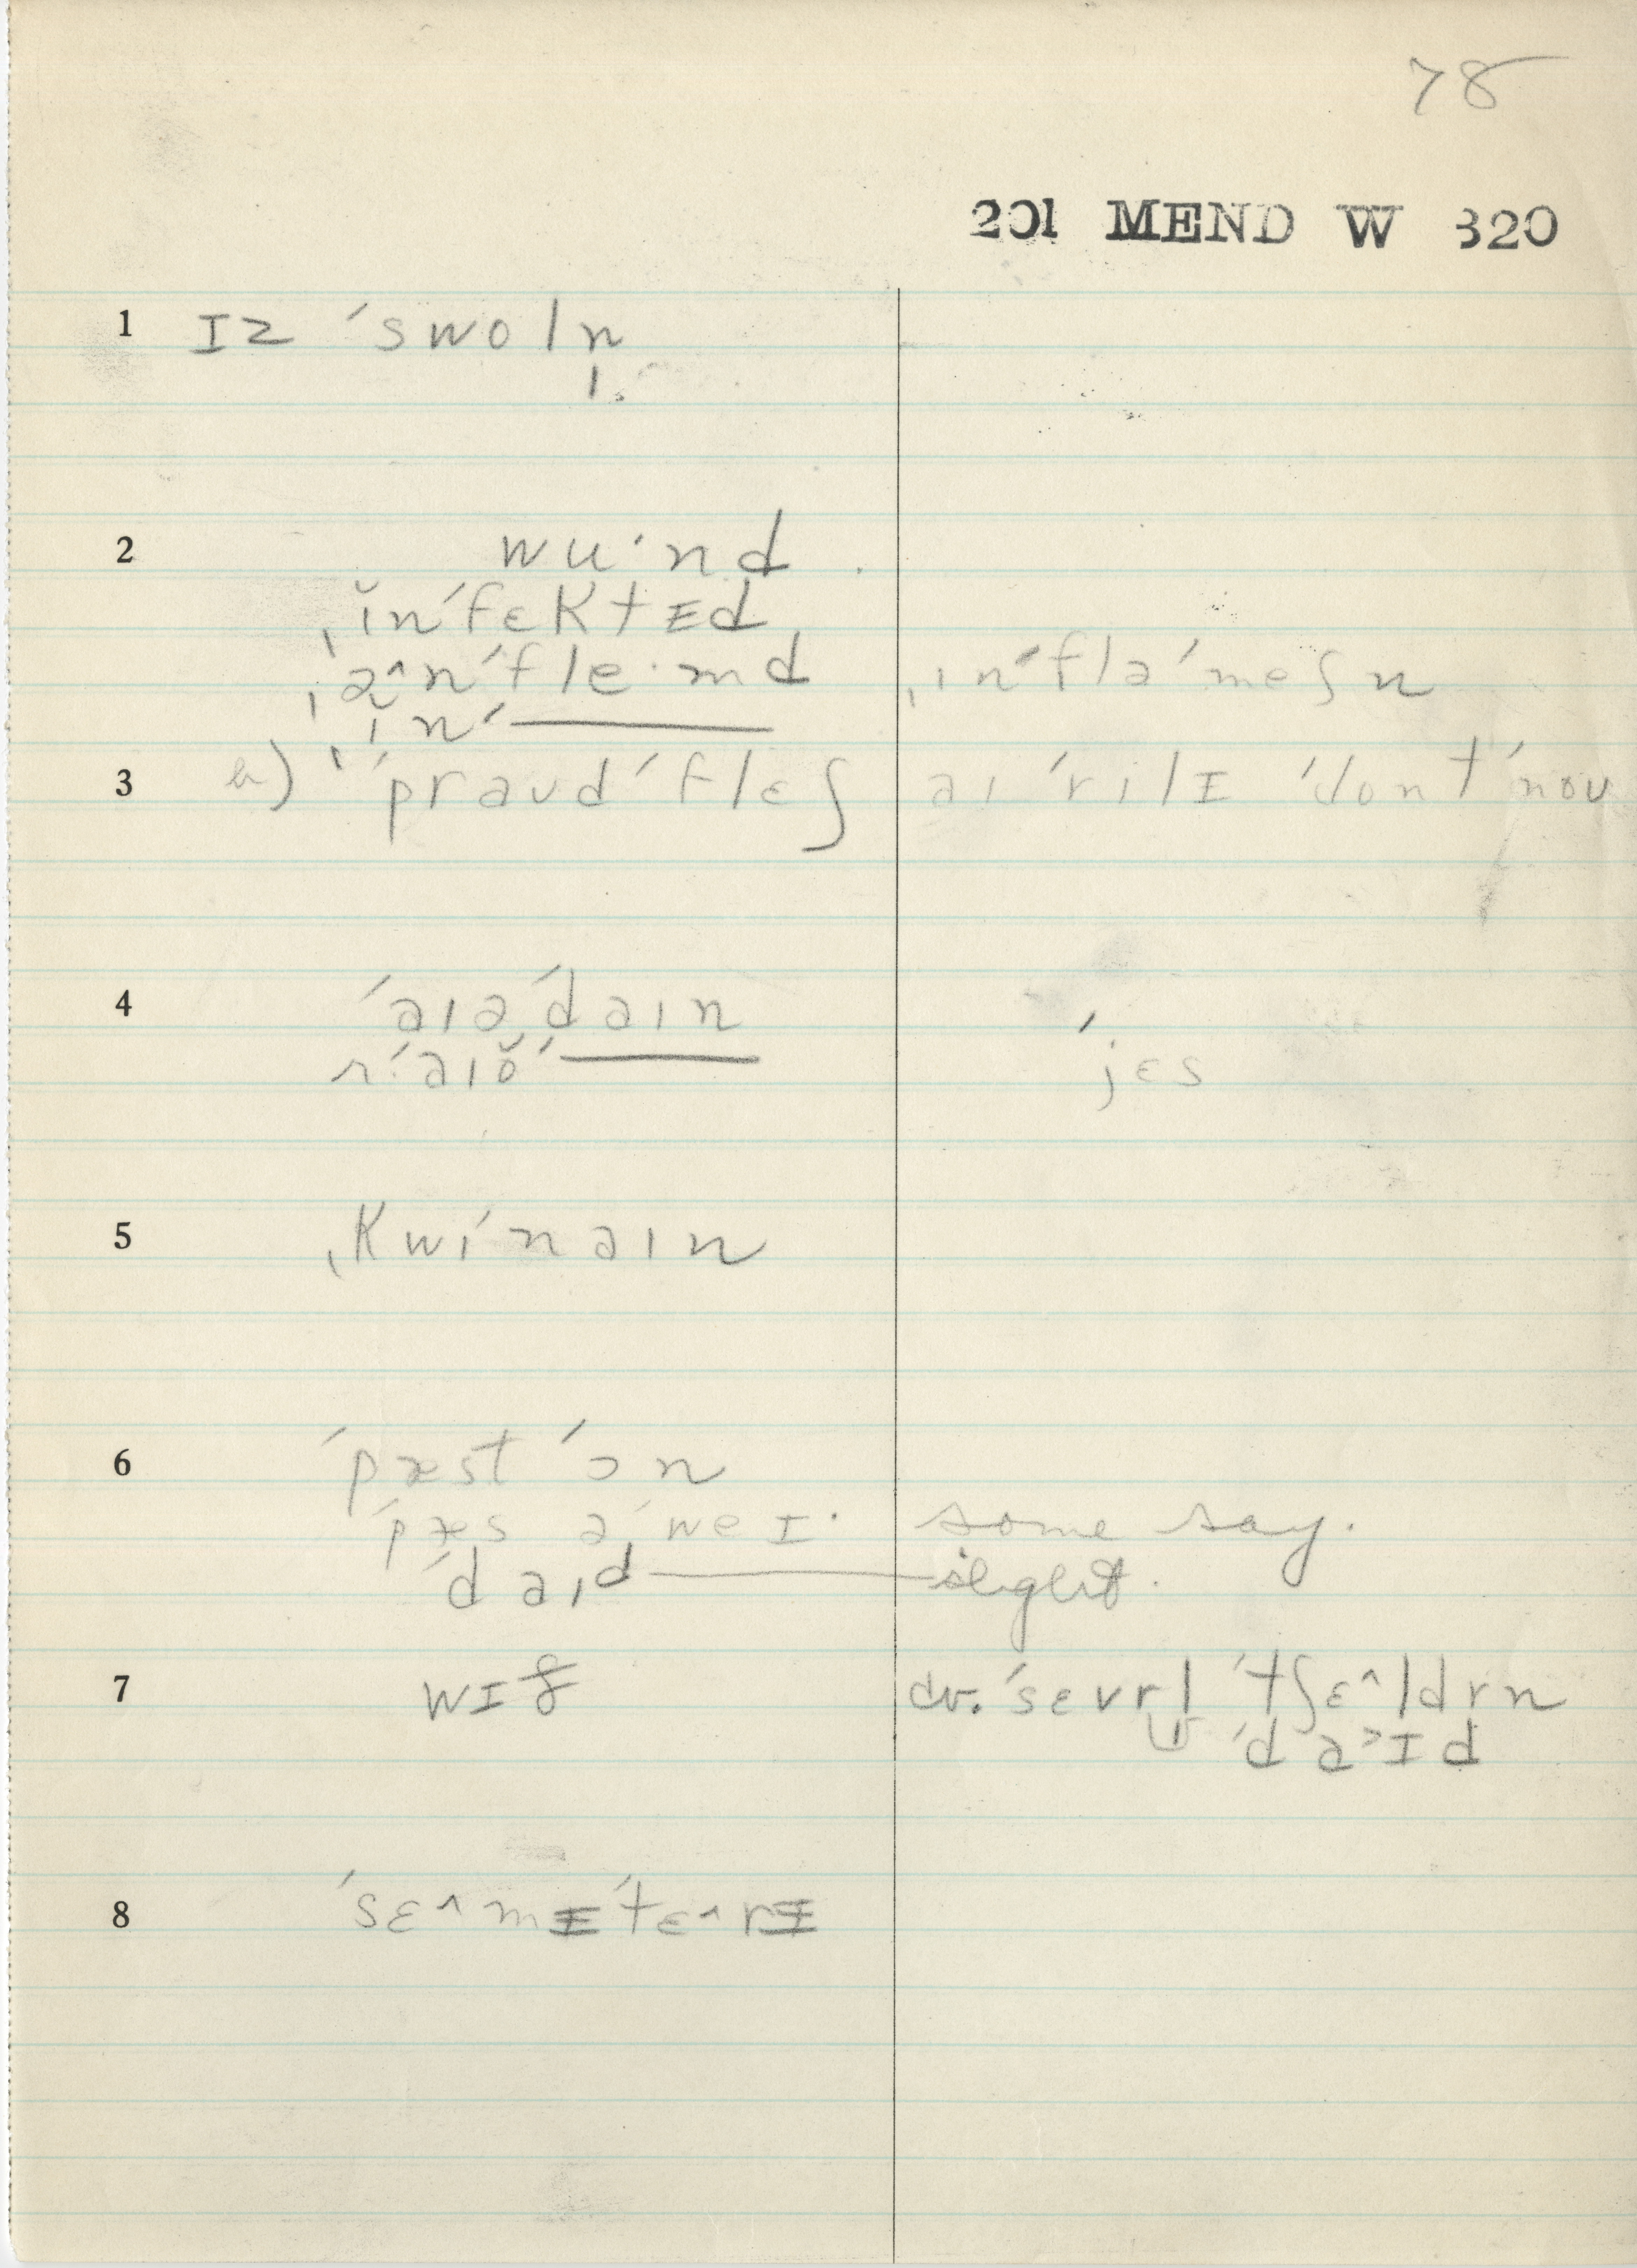 78
201 MEND W 320
1 ɪz ˈswoln̩
2 wuˑnd
ˌĭnˈfɛktᵻd
ˌə̆^nˈfleˑmd ˌinˈfləˈmeʃn
ˌinˈ———
3 a) ˈpraudˈflɛʃ aiˈrilɪ ˈdontˈnou
4 ˈaiəˈdain ˈjɛs
r:ˈaiŏˈ———
5 ˌkwiˈnain
6 ˈpæstˈɔn
ˈpæs əˈweɪ· some say.
ˈdaid——— slight.
7 wɪ cv. ˈsɛvrl̩ ˈtʃɛ^ldrn
ˈda>ɪd
8 ˈsɛ^mᵻˈtɛ^rᵻ